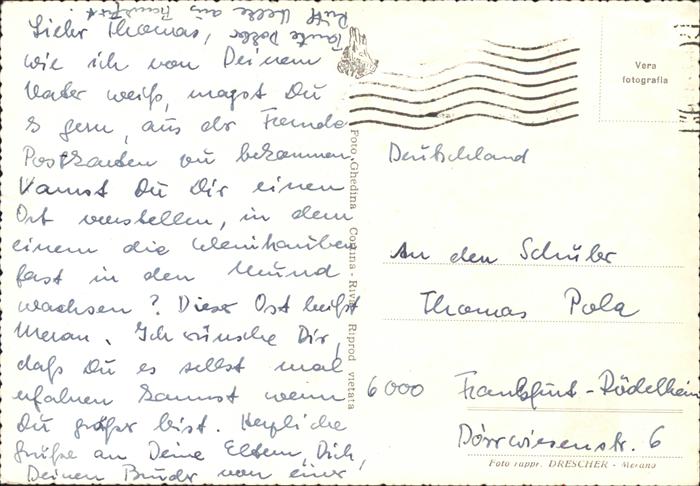 Lieber Thomas,
wie ich von Deinem
Vater weiß, magst Du
es gern, aus der Fremde
Postkarten zu bekommen.
Kannst Du Dir einen
Ort vorstellen, in dem
einem die Weintrauben
fast in den Mund
wachsen? Dieser Ort heißt
Meran. Ich wünsche Dir,
daß Du es selbst mal
erfahren kannst wenn
Du größer bist. Herzliche
Grüße an Deine Eltern, Dich,
Deinen Bruder von einer
Tante
aus Frankfurt.
Foto Ghedina Cortina - Riva - Riprod vietata
Vera
fotografia
Deutschland
An den Schüler
Thomas Pola
6000 Frankfurt-Rödelheim
Dörrwiesenstr. 6
Foto rappr. DRESCHER - Merano